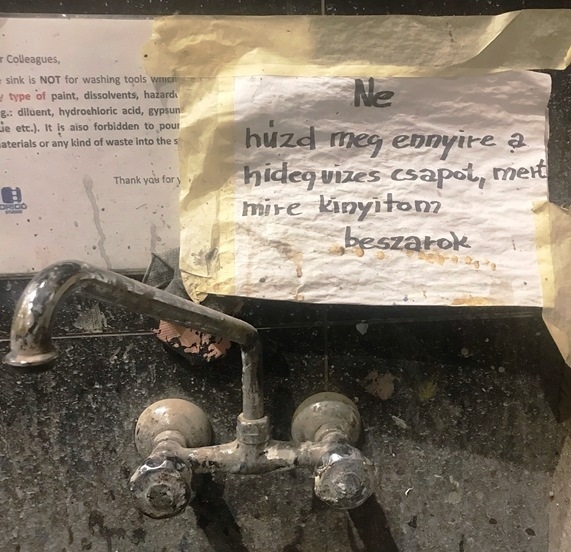 r Colleagues,
sink is NOT for washing tools which
type of paint, dissolvents, hazard
g.: diluent, hydrochloric acid, gypsum
ue etc.). It is also forbidden to pour
aterials or any kind of waste into the s
Thank you for y
Ne
húzd meg ennyire a
hidegvizes csapot, mert
mire kinyitom
beszarok